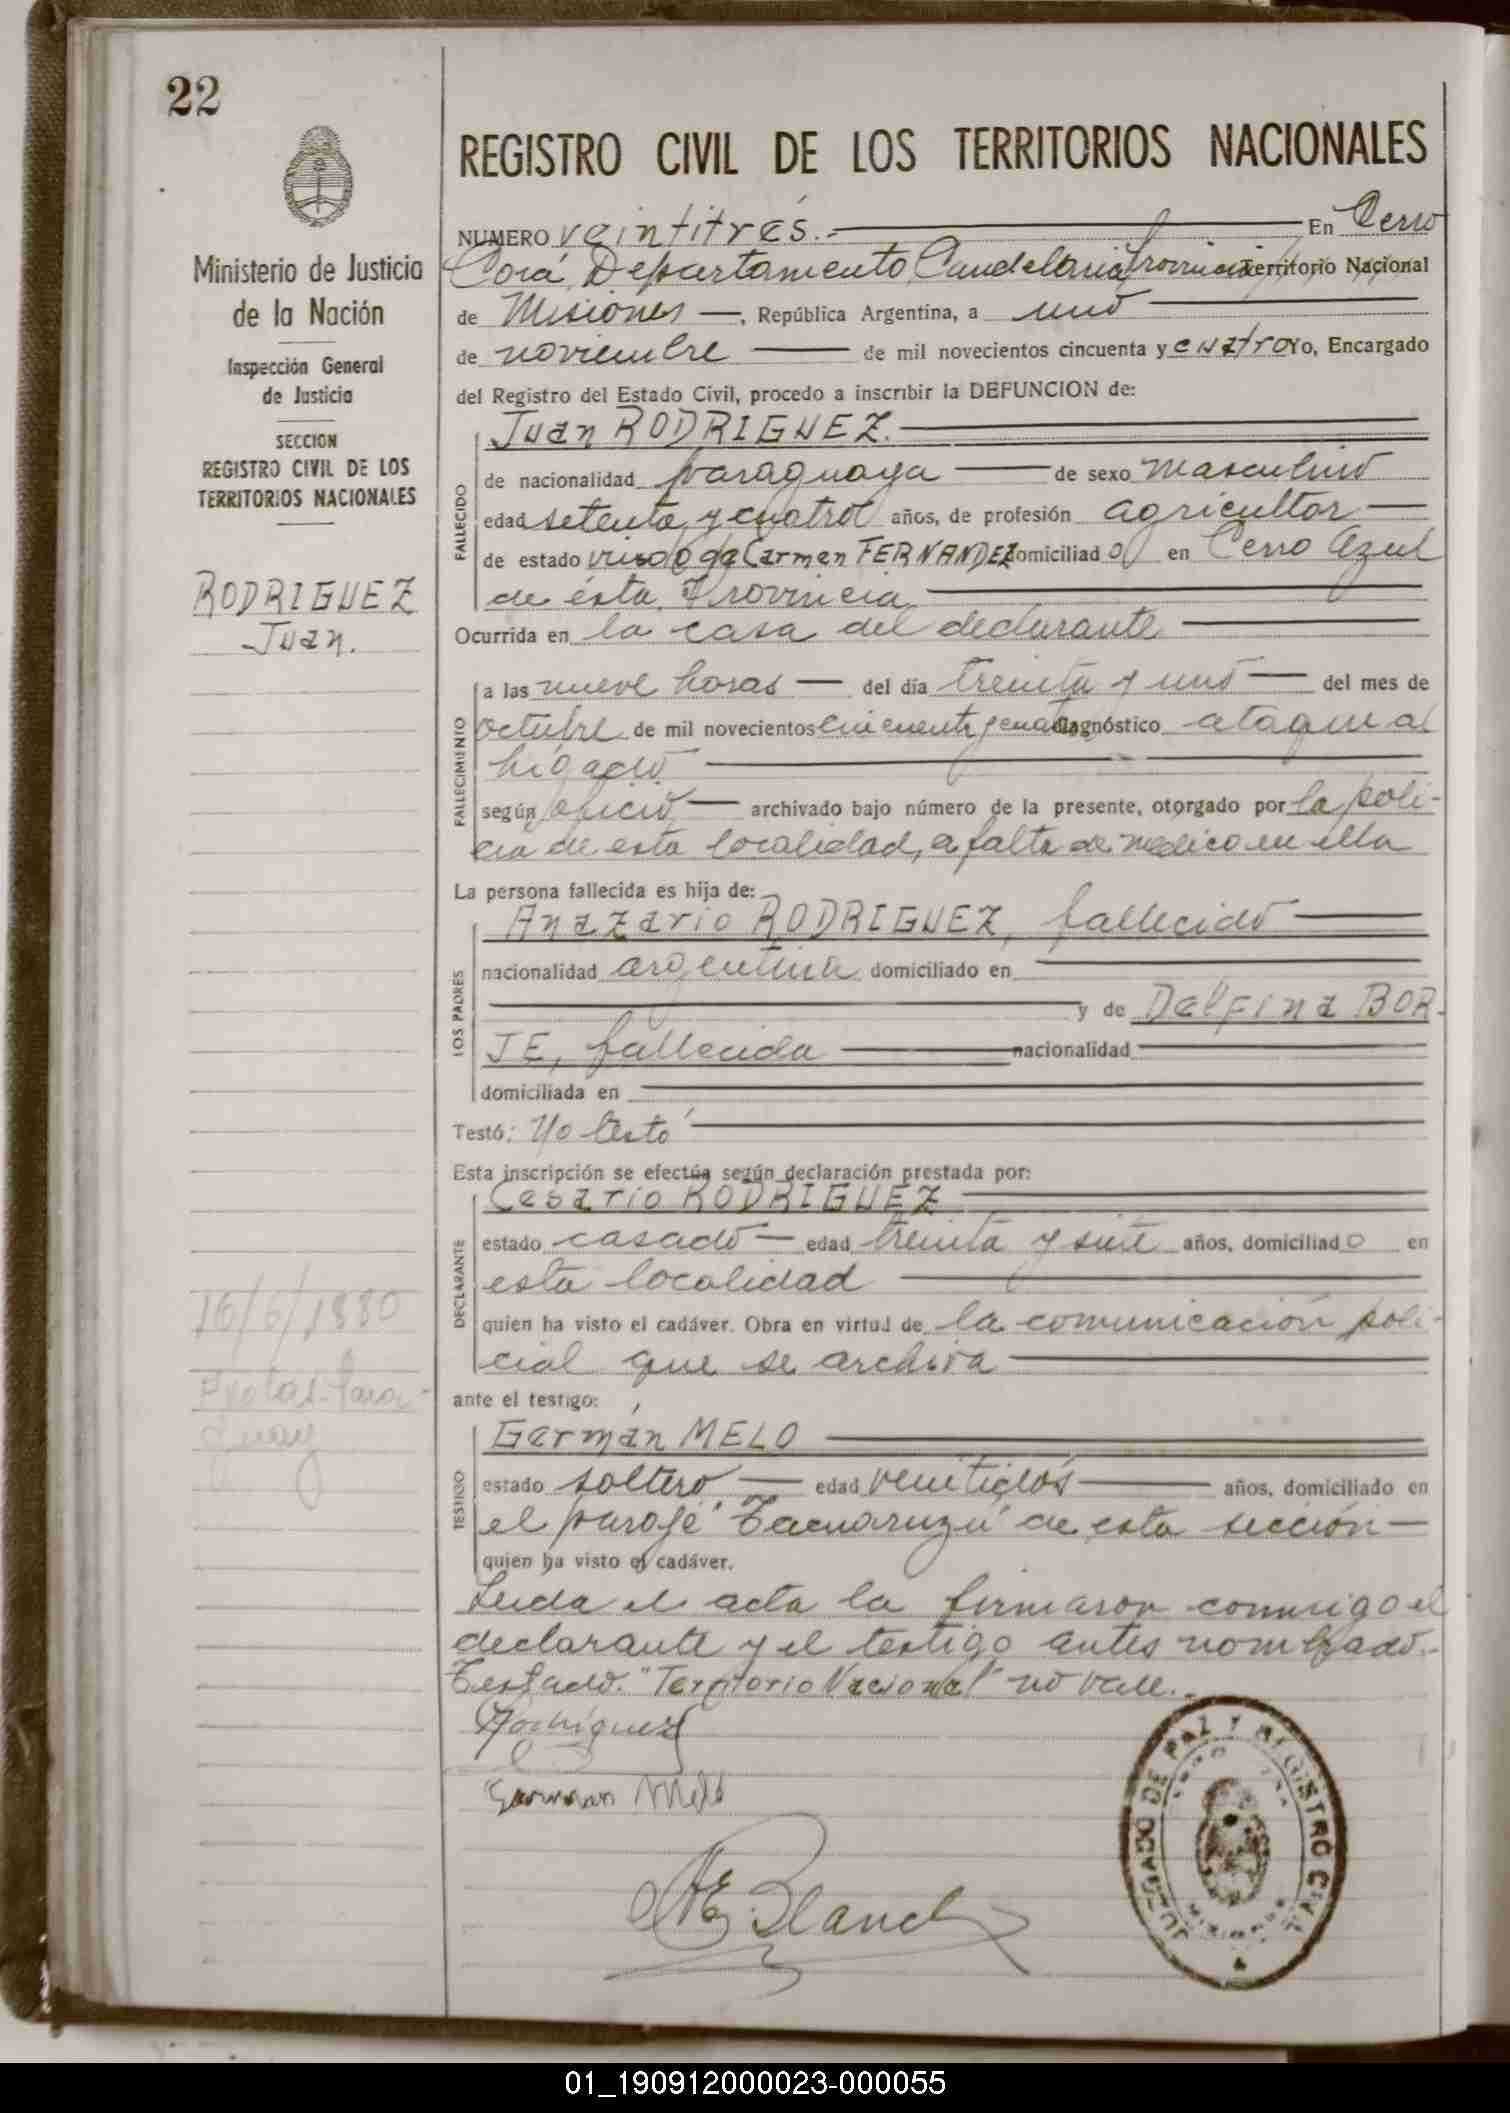 22
REGISTRO CIVIL DE LOS TERRITORIOS NACIONALES
Ministerio de Justicia
de la Nación
Inspección General
de Justicia
SECCION
REGISTRO CIVIL DE LOS
TERRITORIOS NACIONALES
RODRIGUEZ
Juan.
16/6/1880
NUMERO veintitrés.- En Cerro
Corá, Departamento Candelaria Provincia Territorio Nacional
de Misiones, República Argentina, a uno
de noviembre de mil novecientos cincuenta y cuatro yo, Encargado
del Registro del Estado Civil, procedo a inscribir la DEFUNCION de:
FALLECIDO
Juan RODRIGUEZ.
de nacionalidad paraguaya de sexo masculino
edad setenta y cuatro años, de profesión agricultor
de estado viudo de Carmen FERNANDEZ domiciliado en Cerro Azul
de ésta Provincia
Ocurrida en la casa del declarante
FALLECIMIENTO
a las nueve horas del día treinta y uno del mes de
octubre de mil novecientos cincuenta y cuatro diagnóstico ataque al
hígado
según oficio archivado bajo número de la presente, otorgado por la poli-
cia de esta localidad, a falta de médico en ella
La persona fallecida es hija de:
LOS PADRES
Anazario RODRIGUEZ, fallecido
nacionalidad argentina domiciliado en
y de Delfina BOR-
JE, fallecida nacionalidad
domiciliada en
Testó: No testó
Esta inscripción se efectúa según declaración prestada por:
DECLARANTE
Cesario RODRIGUEZ
estado casado edad treinta y siete años, domiciliado en
esta localidad
quien ha visto el cadáver. Obra en virtud de la comunicación poli-
cial que se archiva
ante el testigo:
TESTIGO
Germán MELO
estado soltero edad veintidós años, domiciliado en
el paraje "Tacuaruzú" de esta sección
quien ha visto el cadáver.
Leida el acta la firmaron conmigo el
declarante y el testigo antes nombrado.-
Testado: "Territorio Nacional" no vale.-
Rodriguez
German Melo
JUZGADO DE PAZ Y REGISTRO CIVIL
MISIONES
01_190912000023-000055